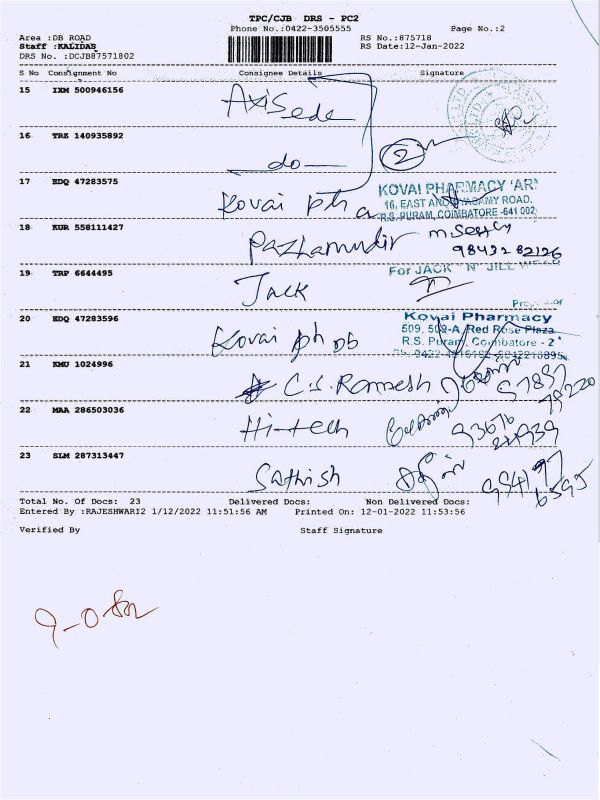 TPC/CJB DRS - PC2
Phone No.:0422-3505555 Page No.:2
Area :DB ROAD RS No.:875718
Staff :KALIDAS RS Date:12-Jan-2022
DRS No. :DCJB87571802
S No Consignment No Consignee Details Signature
15 IXM 500946156 Axis ede
16 TRZ 140935892 do 2
17 EDQ 47283575 Kovai ph a
KOVAI PHARMACY 'AR'
16, EAST ROAD,
R.S. PURAM, COIMBATORE -641 002
18 KUR 558111427 Pazhamudir
98432 82126
19 TRP 6644495 Jack
For JACK 'N' JILL
20 EDQ 47283596 Kovai ph
Kovai Pharmacy
509, 509-A, Red Rose Plaza
R.S. Puram, Coimbatore - 2
21 KMU 1024996 C.S. Ramesh
22 MAA 286503036 Hi-tech
23 SLM 287313447 Sathish
Total No. Of Docs: 23 Delivered Docs: Non Delivered Docs:
Entered By :RAJESHWARI2 1/12/2022 11:51:56 AM Printed On: 12-01-2022 11:53:56
Verified By Staff Signature